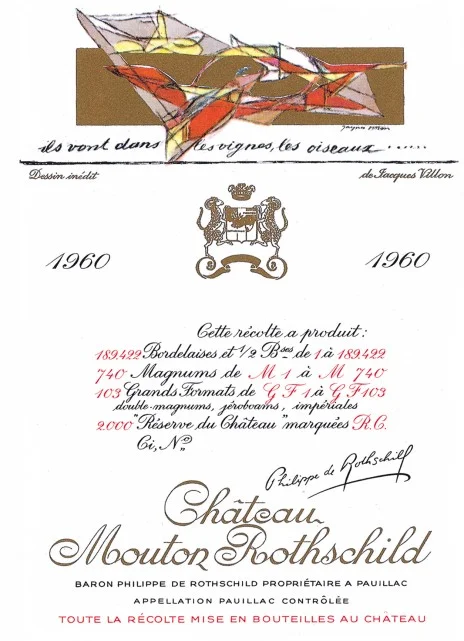 ils vont dans les vignes, les oiseaux ......
Dessin inédit de Jacques Villon
1960 1960
Cette récolte a produit :
189.422 Bordelaises et 1/2 Bses de 1 à 189.422
740 Magnums de M 1 à M 740
103 Grands Formats de G F 1 à G F 103
double-magnums, jéroboams, impériales
2.000 "Réserve du Château" marquées R.C.
Ci, No
Philippe de Rothschild
Château
Mouton Rothschild
BARON PHILIPPE DE ROTHSCHILD PROPRIÉTAIRE A PAUILLAC
APPELLATION PAUILLAC CONTRÔLÉE
TOUTE LA RÉCOLTE MISE EN BOUTEILLES AU CHATEAU